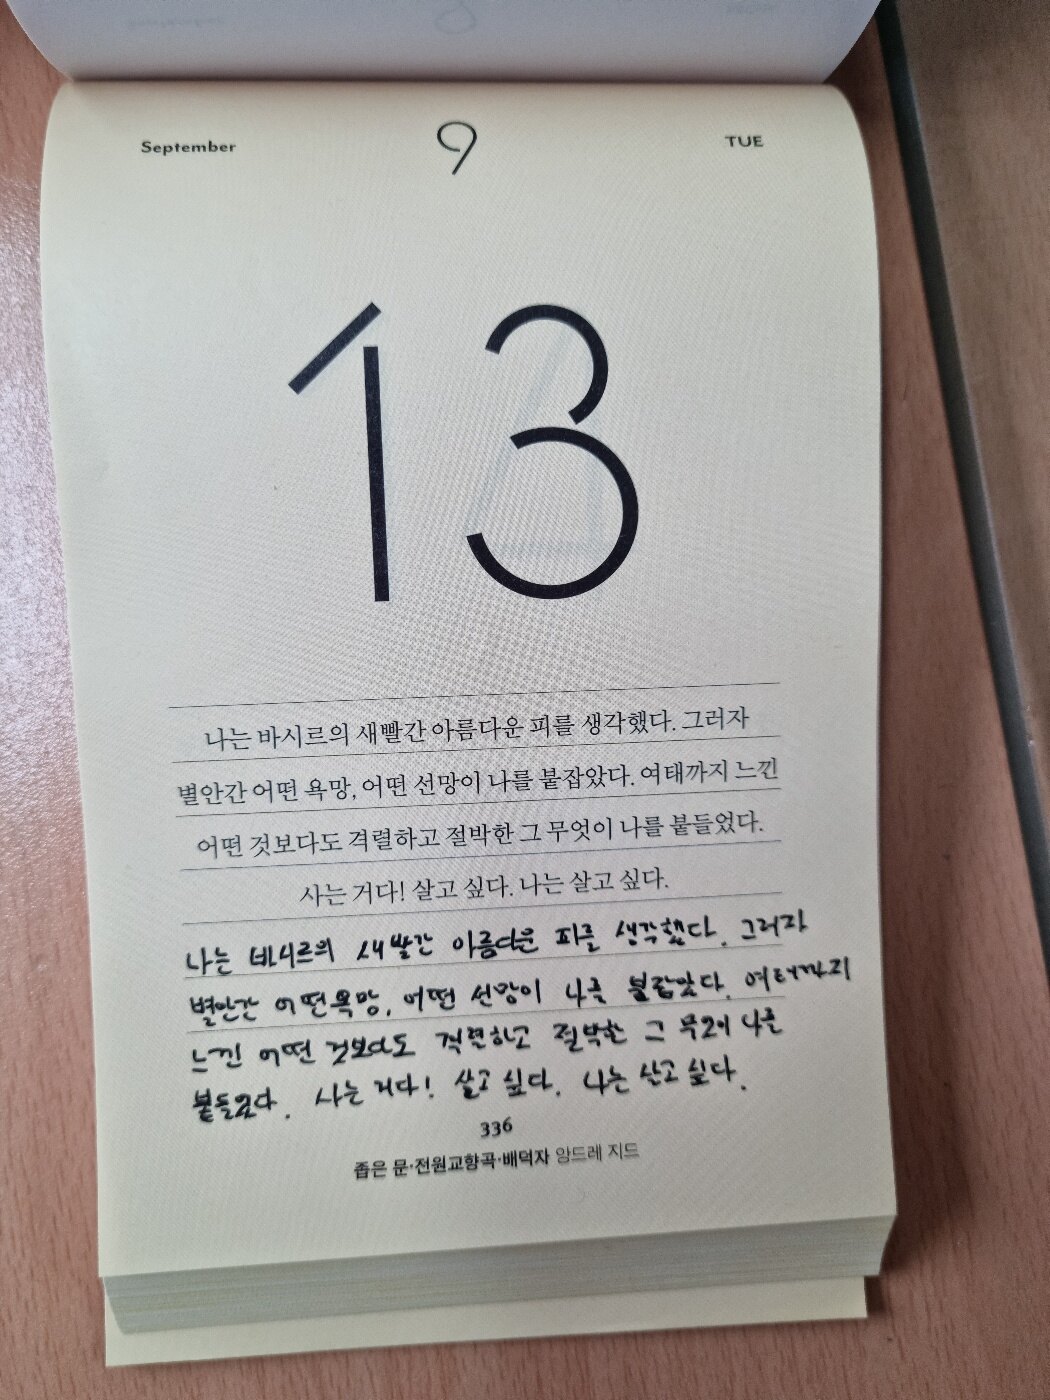 September 9 TUE
13
나는 바시르의 새빨간 아름다운 피를 생각했다. 그러자
별안간 어떤 욕망, 어떤 선망이 나를 붙잡았다. 여태까지 느낀
어떤 것보다도 격렬하고 절박한 그 무엇이 나를 붙들었다.
사는 거다! 살고 싶다. 나는 살고 싶다.
나는 바시르의 새빨간 아름다운 피를 생각했다. 그러자
별안간 어떤 욕망, 어떤 선망이 나를 붙잡았다. 여태까지
느낀 어떤 것보다도 격렬하고 절박한 그 무엇이 나를
붙들었다. 사는 거다! 살고 싶다. 나는 살고 싶다.
336
좁은 문·전원교향곡·배덕자 앙드레 지드